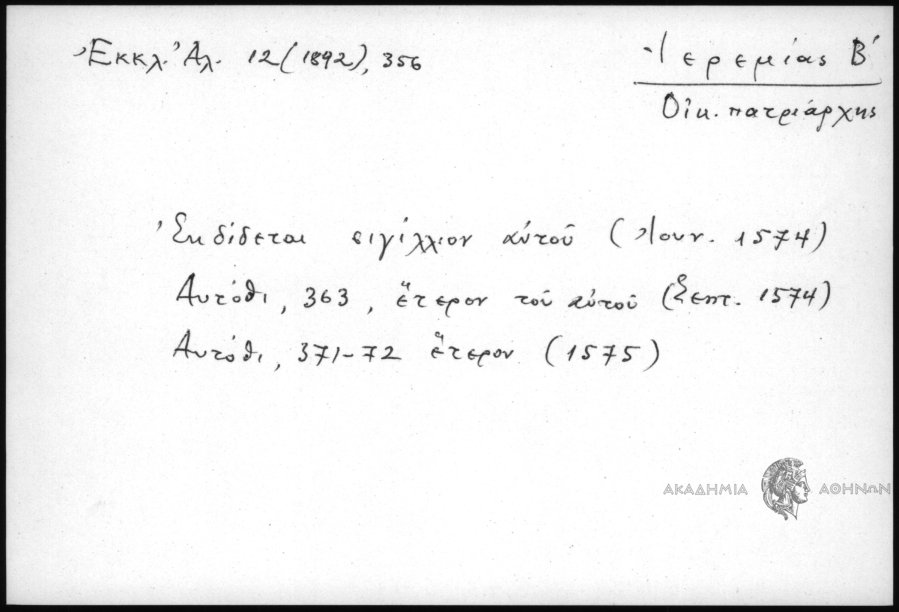 Ἐκκλ. Ἀλ. 12 (1892), 356
Ἱερεμίας Β΄
Οἰκ. πατριάρχης
Ἐκδίδεται σιγίλλιον αὐτοῦ (Ἰουν. 1574)
Αὐτόθι, 363, ἕτερον τοῦ αὐτοῦ (Σεπτ. 1574)
Αὐτόθι, 371-72 ἕτερον (1575)
ΑΚΑΔΗΜΙΑ ΑΘΗΝΩΝ